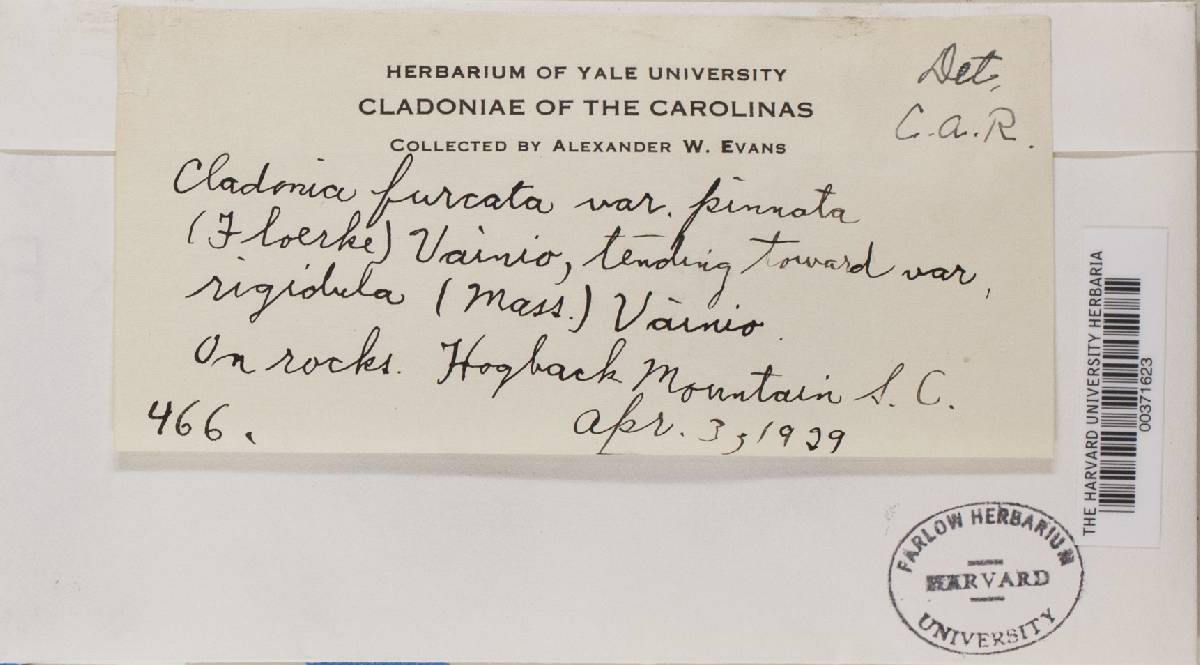 HERBARIUM OF YALE UNIVERSITY
CLADONIAE OF THE CAROLINAS
COLLECTED BY ALEXANDER W. EVANS
Det.
C.A.R.
Cladonia furcata var. pinnata
(Floerke) Vainio, tending toward var.
rigidula (Mass.) Vainio
On rocks. Hogback Mountain S. C.
466. Apr. 3, 1929
THE HARVARD UNIVERSITY HERBARIA
00371623
FARLOW HERBARIUM
HARVARD
UNIVERSITY